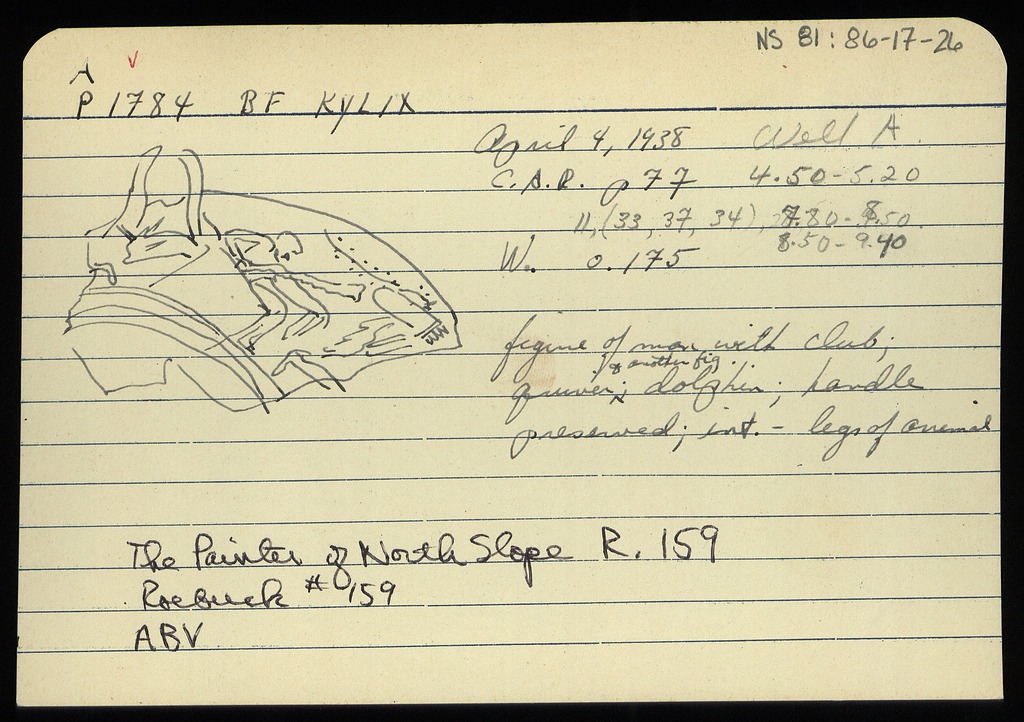 NS 81 : 86-17-26
A v
P 1784 BF KYLIX
April 4, 1938 Well A
C.A.R. p 77 4.50 - 5.20
11, (33, 37, 34), 7.80 - 8.50
8.50 - 9.40
W. 0.175
figure of man with club;
& another fig
quiver; dolphin; handle
preserved; int. - legs of animal
The Painter of North Slope R. 159
Roebuck # 159
ABV